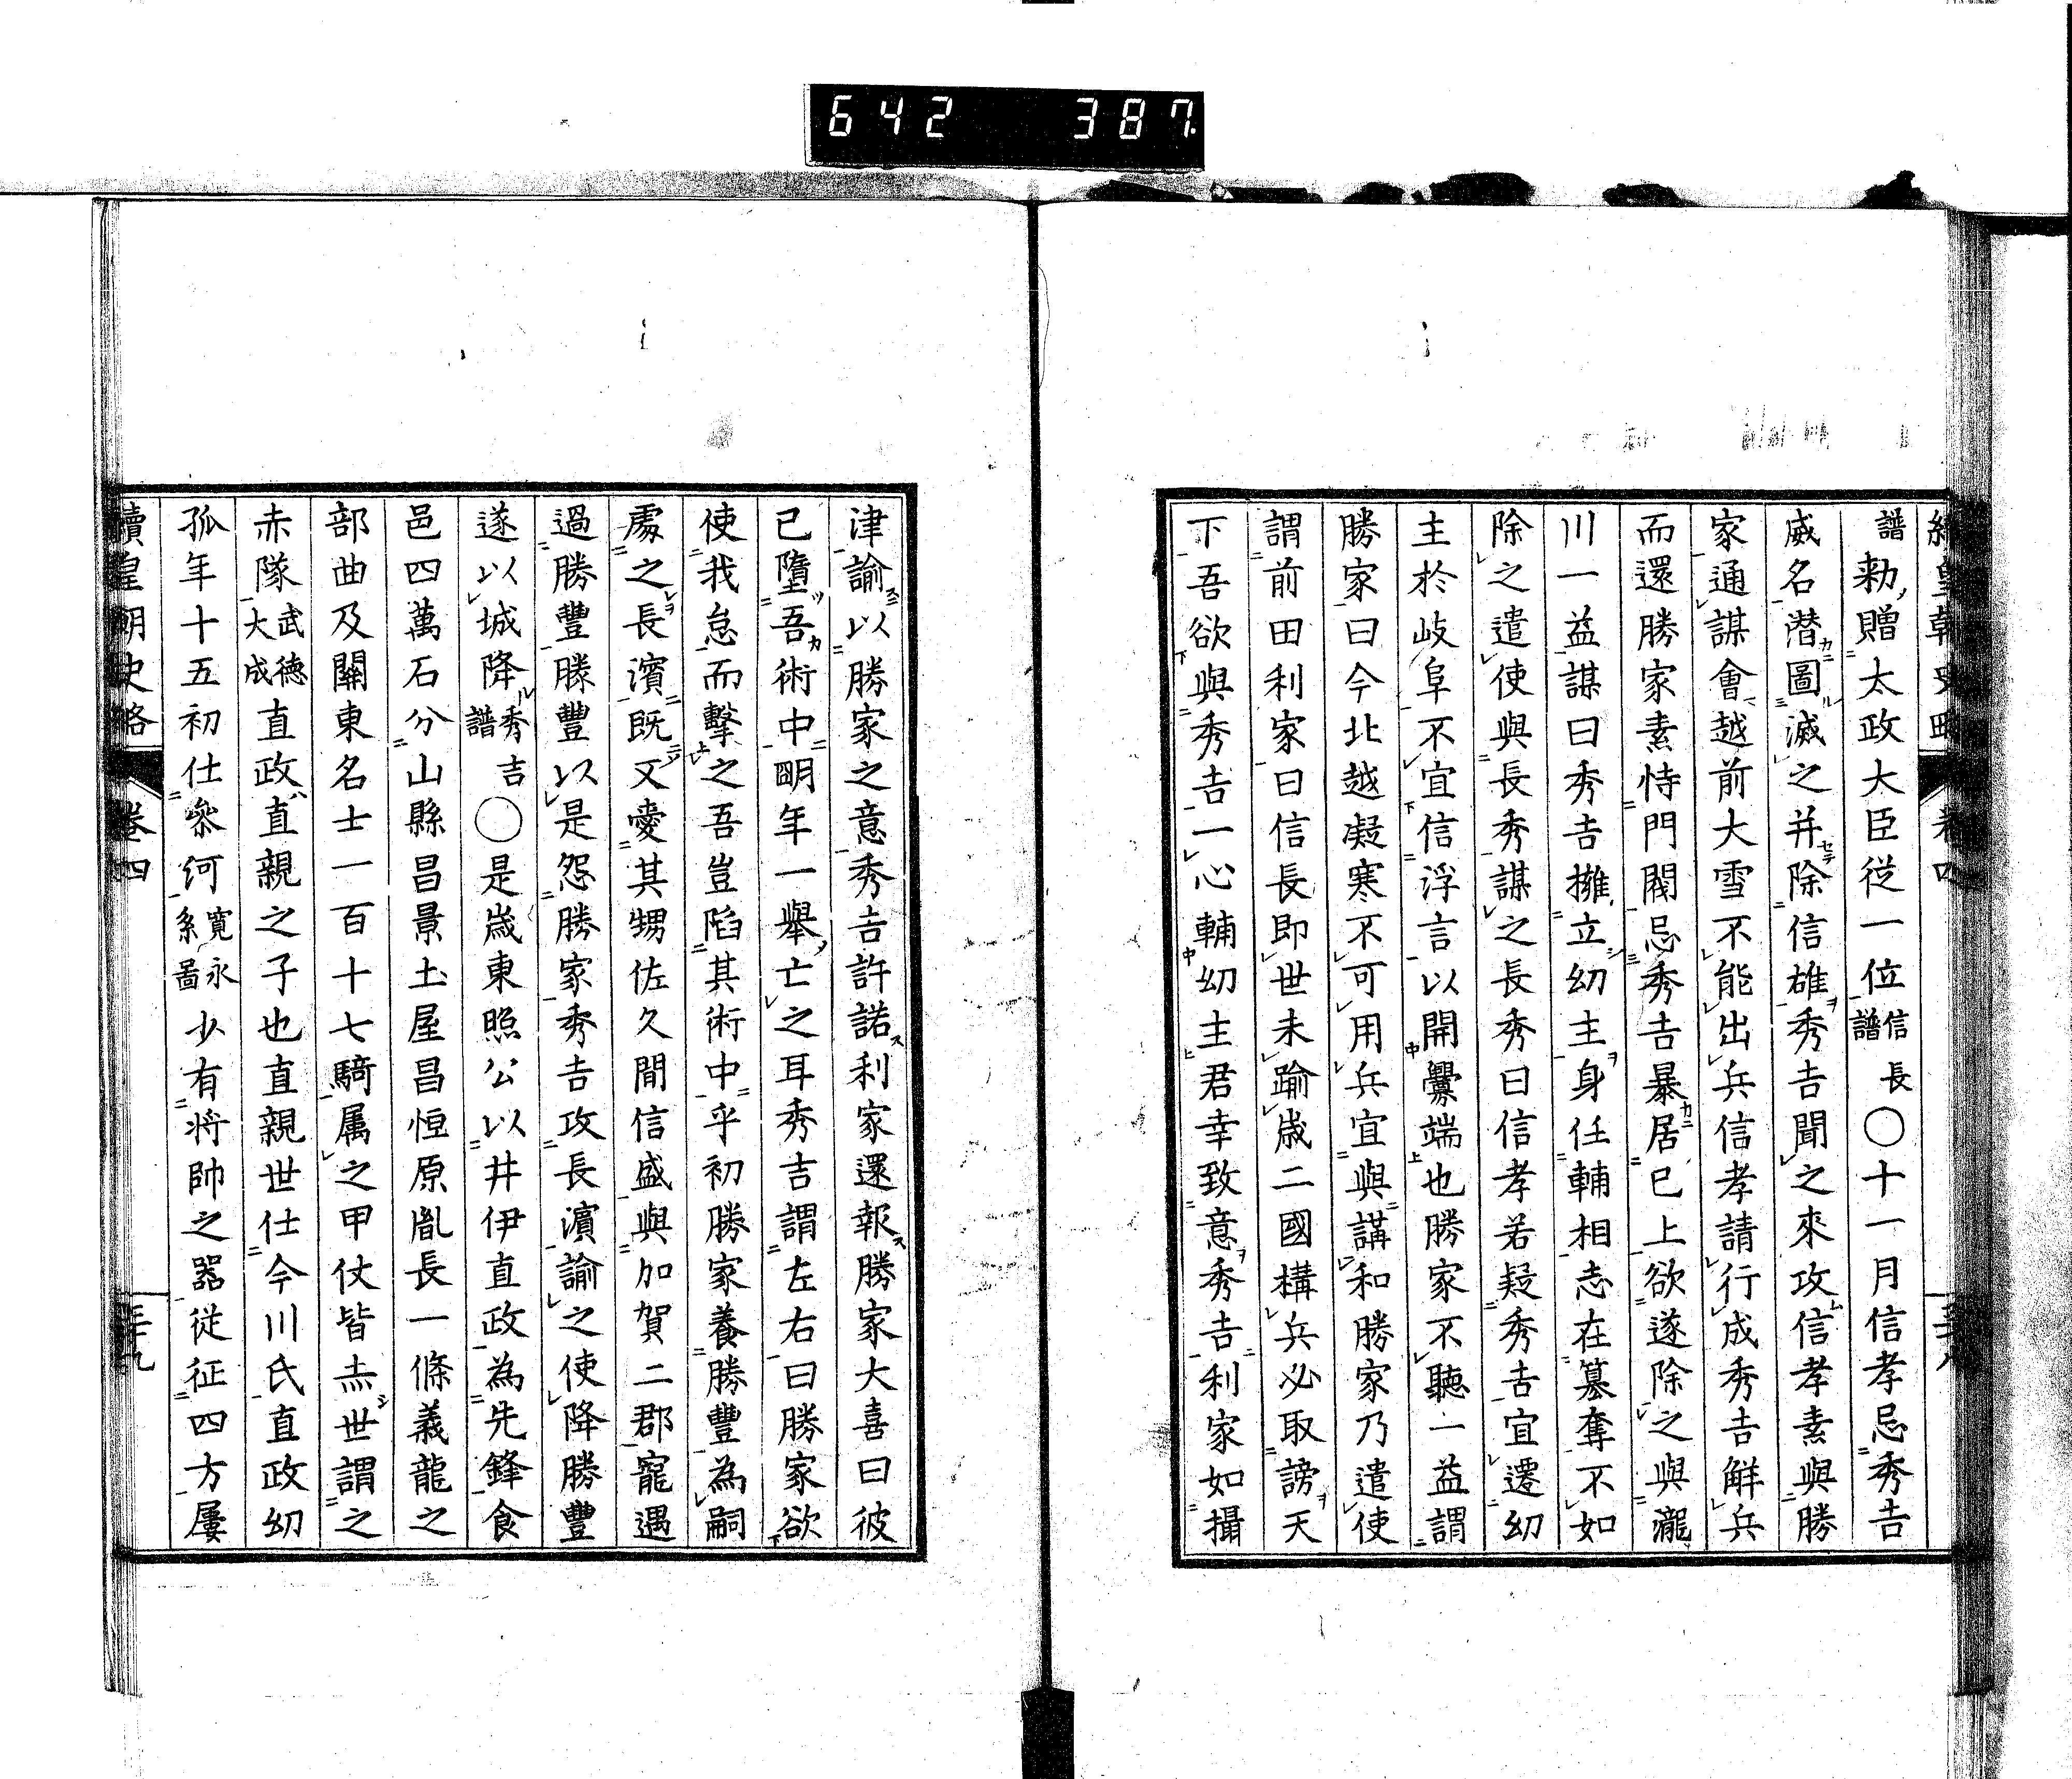 642 387
續皇朝史略 卷四
譜勅贈太政大臣從一位信長譜〇十一月信孝忌秀吉
威名潜圖滅之并除信雄秀吉聞之來攻信孝素與勝
家通謀會越前大雪不能出兵信孝請行成秀吉解兵
而還勝家素恃門閥忌秀吉暴居已上欲遂除之與瀧
川一益謀曰秀吉擁立幼主身任輔相志在簒奪不如
除之遣使與長秀謀之長秀曰信孝若疑秀吉宜遷幼
主於岐阜不宜信浮言以開釁端也勝家不聽一益謂
勝家曰今北越凝寒不可用兵宜與講和勝家乃遣使
謂前田利家曰信長即世未踰歲二國構兵必取謗天
下吾欲與秀吉一心輔幼主君幸致意秀吉利家如攝
津諭以勝家之意秀吉許諾利家還報勝家大喜曰彼
已墮吾術中明年一舉亡之耳秀吉謂左右曰勝家欲
使我怠而擊之吾豈陷其術中乎初勝家養勝豐為嗣
處之長濱既又愛其甥佐久間信盛與加賀二郡寵遇
過勝豐勝豐以是怨勝家秀吉攻長濱諭之使降勝豐
遂以城降秀吉譜〇是歲東照公以井伊直政為先鋒食
邑四萬石分山縣昌景土屋昌恒原胤長一條義龍之
部曲及關東名士一百十七騎属之甲仗皆赤世謂之
赤隊武德大成直政直親之子也直親世仕今川氏直政幼
孤年十五初仕參河寛永系圖少有將帥之器從征四方屢
續皇朝史略 卷四 三十九